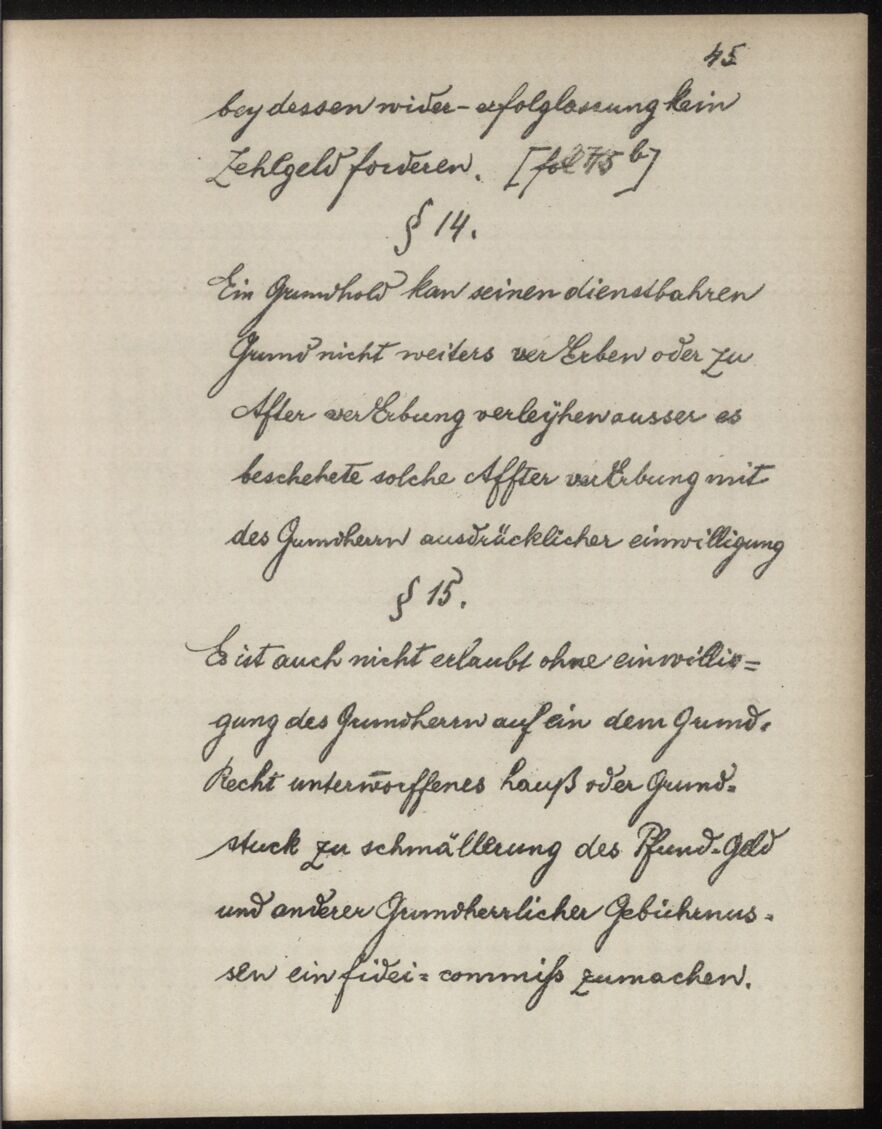 45
bey dessen wider-erfolglassung kein
Zehlgeld forderen. [fol 75 b]
§ 14.
Ein Grundhold kan seinen dienstbahren
Grund nicht weiters verErben oder zu
After verErbung verleÿhen ausser es
beschehete solche Affter verErbung mit
des Grundherrn ausdrücklicher einwilligung
§ 15.
Es ist auch nicht erlaubt ohne einwilli=
gung des Grundherrn auf ein dem Grund=
Recht unterworffenes hauß oder Grund=
stuck zu schmällerung des Pfund-Geld
und anderer Grundherrlicher Gebührnus=
sen ein fidei=commiss zumachen.